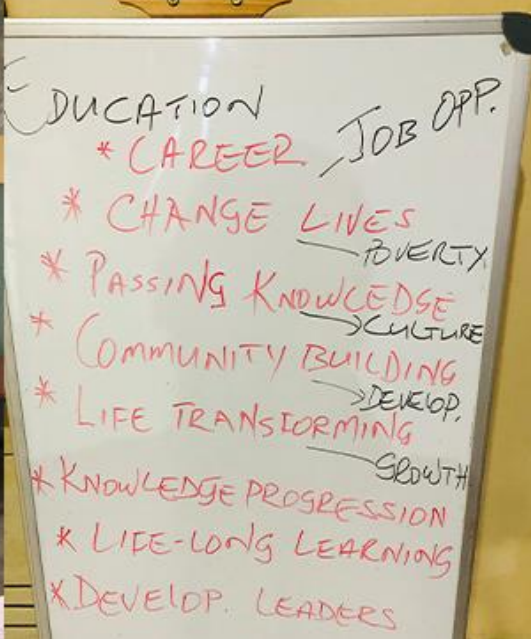 EDUCATION
* CAREER
JOB OPP.
* CHANGE LIVES
POVERTY
* PASSING KNOWLEDGE
CULTURE
* COMMUNITY BUILDING
DEVELOP.
* LIFE TRANSFORMING
GROWTH
* KNOWLEDGE PROGRESSION
* LIFE-LONG LEARNING
* DEVELOP. LEADERS